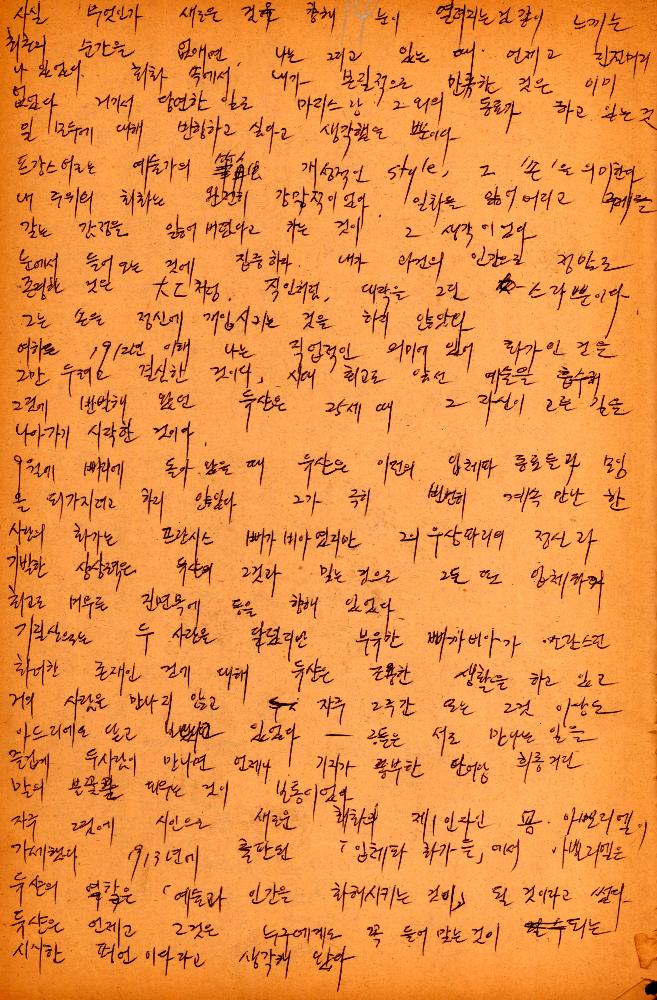 사실 무엇인가 새로운 것을 향해 눈이 열려지는 것 같이 느끼는
최초의 순간을 없애면, 나는 그리고 있는 때 언제고
나 있었다. 회화 속에서 내가 본질적으로 반응한 것은 이미
없었다 거기서 당연한 일로 마티스랑 그 외의 동료가 하고 있는 것
일 모두에 대해 반항하고 싶다고 생각했을 뿐이다
예술가의 개성적인 style, 그 '손'을 의미한다
내 주위의 회화는 완전히 강압적이었다 일화를 잃어버리고
같는 감정을 잃어 버렸다고 하는 것이 그 생각이었다
눈에서 들어오는 것에 집중하라. 내가 과건의 인간으로 정말로
존경한 것은 大工처럼, 직인처럼, 대략을 그린 스라뿐이다
그는 손을 정신에 개입시키는 것을 하지 않았다
여하튼 1912년 이래 나는 직업적인 의미에 있어 화가인 것을
그만 두려고 결심한 것이다」 시대 최고로 앞선 예술을 흡수해
그것에 반해 왔던 두샨은 25세 때 그 자신이 고른 길을
나아가기 시작한 것이다.
9월에 빠리에 돌아 왔을 때 두샨은 이전의 입체파 동료들과 모임
을 되가지려고 하지 않았다 그가 극히 빈번히 계속 만난 한
사람의 화가는 프란시스 삐까비아였지만 그의 우상파괴의 정신과
기발한 상상력은 두샨의 그것과 맞는 것으로 그도 또 입체파의
최고로 머무른 진면목에 등을 향해 있었다
기질상으로는 두 사람은 달랐지만 부유한 삐까비아가
화려한 존재인 것에 대해 두샨은 조용한 생활을 하고 있고
거의 사람을 만나지 않고 자주 2주간 또는 그것 이상도
아뜨리에를 닫고 있었다 — 그들은 서로 만나는 일을
즐겁게 두사람이 만나면 언제나 기지가 풍부한 단어랑 희롱거린
말의 불꽃을 피우는 것이 보통이었다
자주 그것에 시인으로 새로운 회화의 제1인자인 폼. 아뽀리넬이
가세했다. 1913년에 출판된 「입체파 화가들」에서 아뽀리넬은
두샨의 역할은 「예술과 인간을 화해시키는 것이」 될 것이라고 썼다.
두샨은 언제고 그것은 누구에게도 꼭 들어 맞는 것이 되는
시시한 평언이라고 생각해 왔다